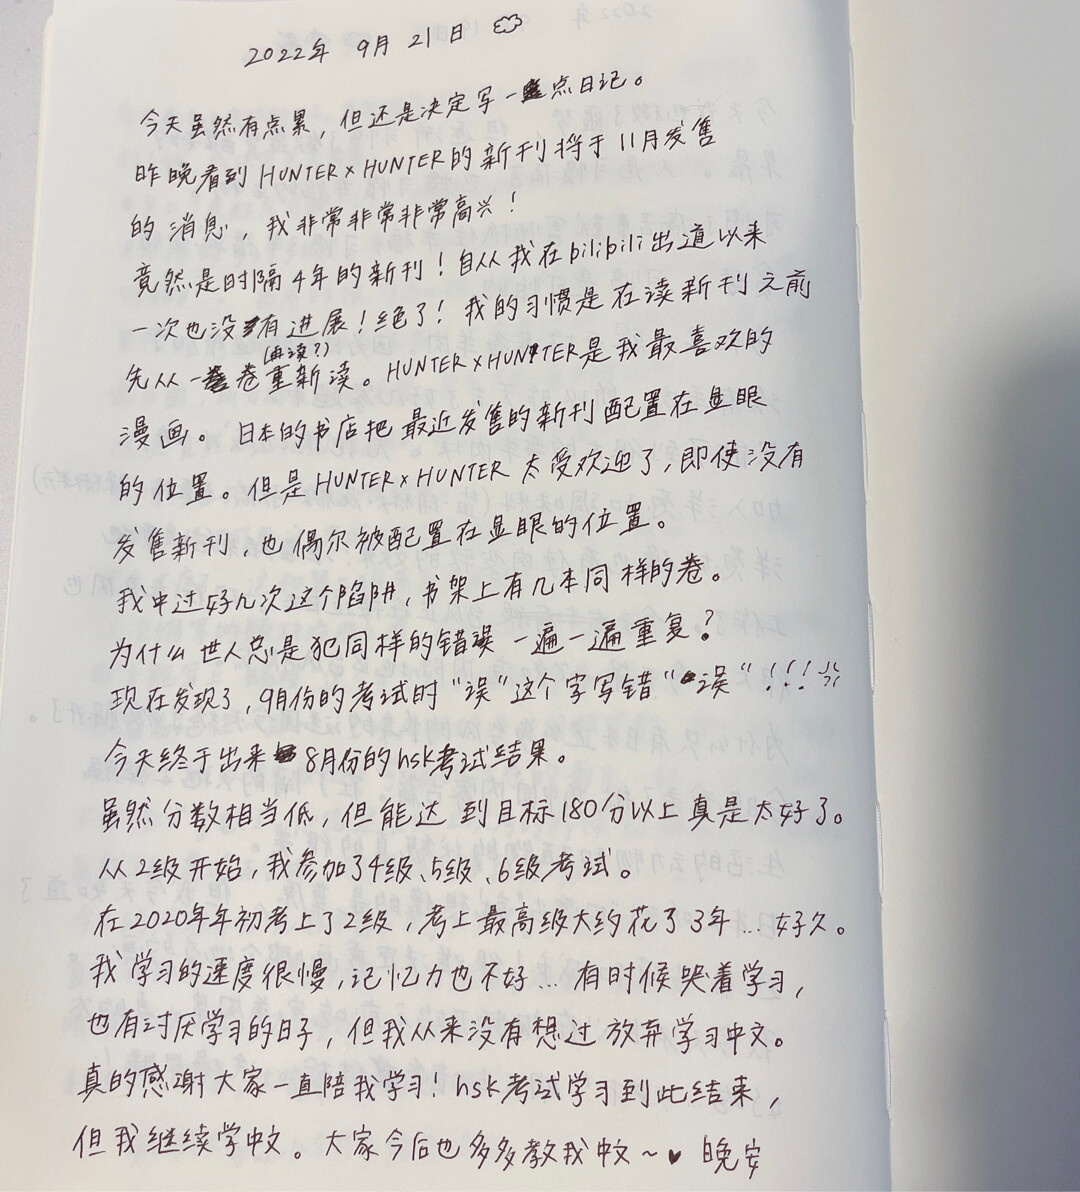 2022年 9月 21日
今天虽然有点累，但还是决定写一点日记。
昨晚看到 HUNTER×HUNTER的新刊将于11月发售
的消息，我非常非常非常高兴！
竟然是时隔4年的新刊！自从我在bilibili出道以来
一次也没有进展！绝了！我的习惯是在读新刊之前
(再读?)
先从一卷重新读。HUNTER×HUNTER是我最喜欢的
漫画。日本的书店把最近发售的新刊配置在显眼
的位置。但是HUNTER×HUNTER太受欢迎了，即使没有
发售新刊，也偶尔被配置在显眼的位置。
我中过好几次这个陷阱，书架上有几本同样的卷。
为什么世人总是犯同样的错误一遍一遍重复？
现在发现了，9月份的考试时“误”这个字写错“误”!!!
今天终于出来8月份的hsk考试结果。
虽然分数相当低，但能达到目标180分以上真是太好了。
从2级开始，我参加了4级、5级、6级考试。
在2020年年初考上了2级，考上最高级大约花了3年…好久。
我学习的速度很慢，记忆力也不好…有时候哭着学习，
也有讨厌学习的日子，但我从来没有想过放弃学习中文。
真的感谢大家一直陪我学习！hsk考试学习到此结束，
但我继续学中文。大家今后也多多教我中文~♥ 晚安